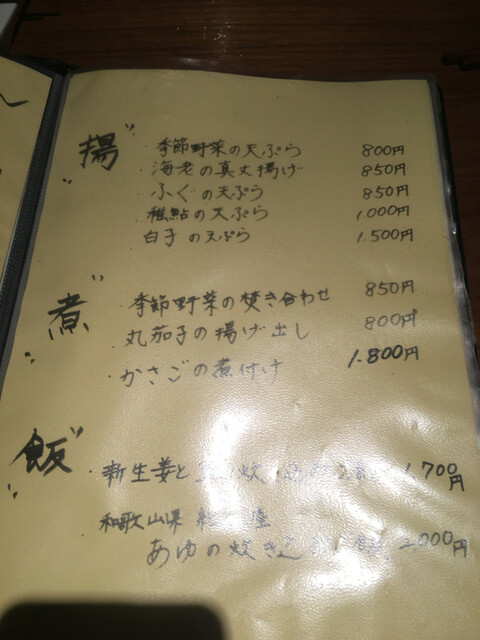 揚
季節野菜の天ぷら 800円
海老の真丈揚げ 850円
ふぐの天ぷら 850円
稚鮎の天ぷら 1,000円
白子の天ぷら 1.500円
煮
・季節野菜の焚き合わせ 850円
・丸茄子の揚げ出し 800円
・かさごの煮付け 1.800円
飯
・新生姜と 炊 1,700円
和歌山県
あゆの炊き込 2000円